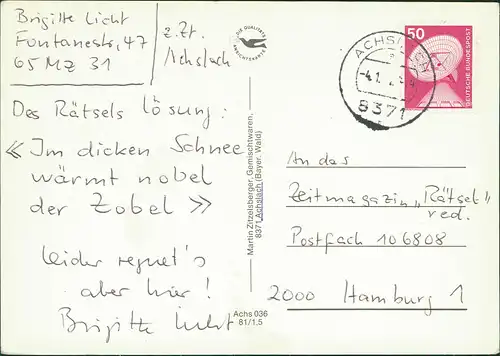 Brigitte Licht
Fontanestr. 47
65 MZ 31
z. Zt.
Achslach
Des Rätsels Lösung:
« Im dicken Schnee
wärmt nobel
der Zobel »
leider regnet's
aber hier!
Brigitte Licht
DIE QUALITÄTS
ANSICHTSKARTE
Martin Zitzelsberger, Gemischtwaren,
8371 Achslach (Bayer. Wald)
Achs 036
81/1,5
8371
50
DEUTSCHE BUNDESPOST
An das
Zeitmagazin „Rätsel"
red.
Postfach 106808
2000 Hamburg 1